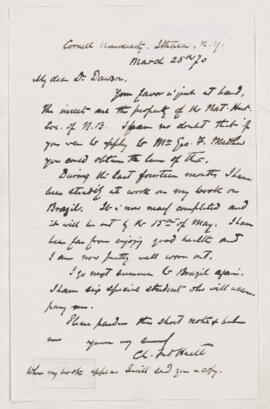 Cornell University. Ithaca, N.Y.
March 25th 70
My dear Dr. Dawson,
Your favor is just at hand,
the insects are the property of the Nat. Hist.
Soc. of N.B. I have no doubt that if
you were to apply to Mr. Geo. F. Matthew
you could obtain the loan of the.
During the last fourteen months I have
been steadily at work on my book on
Brazil. It is now nearly completed and
it will be out by the 15th of May. I have
been far from enjoying good health and
I am now pretty well worn out.
I go next summer to Brazil again.
I have six special students who will accom
pany me.
Please pardon this short note & believe
me yours very sincerely
Ch. Fred Hartt
When my book appears I will send you a copy.